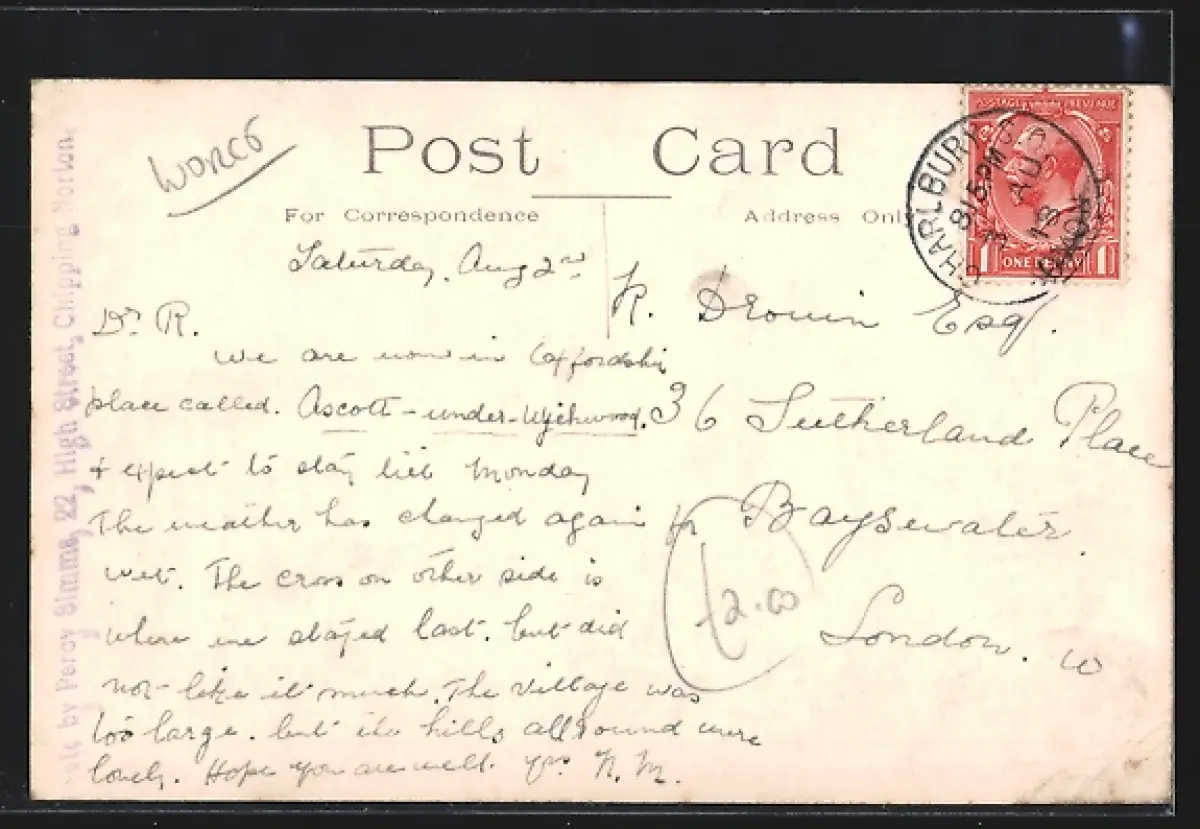 Worcs
Post Card
For Correspondence
Address Only
POSTAGE REVENUE
ONE PENNY
1 1
CHARLBURY
8 15 PM
AU
13
Sold by Percy Simms, 22, High Street, Chipping Norton.
Saturday, Aug 2nd
Dr R.
We are now in Oxfordshire
place called. Ascott-under-Wychwood.
+ expect to stay till Monday
The weather has changed again to
wet. The cross on other side is
where we stayed last. but did
not like it much. The village was
too large. but the hills all round were
lovely. Hope you are well. yrs. N. M.
R. Drouin Esq.
36 Sutherland Place
Bayswater
London. W
£2.00